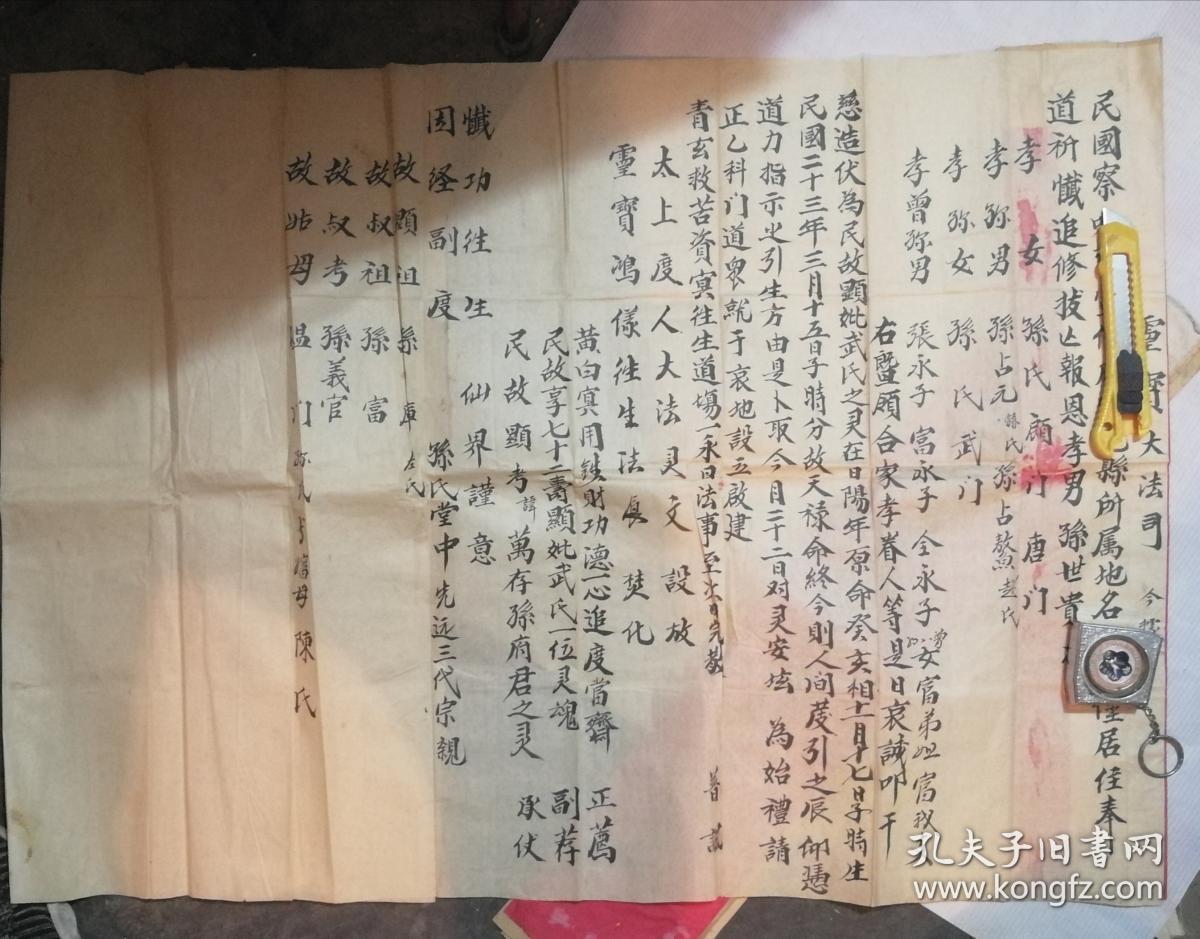 靈寶大法司
民國察 縣所属地名 住居住奉
道祈懺追修拔亡報恩孝男 孫世貴
孝 女 孫氏 顧門 唐門
孝 孙男 孫占元 孫氏 孫占鰲 趙氏
孝 孙女 孫氏武門
孝曾孙男 張永子 富永子 全永子 女富弟
右暨願合家孝眷人等是日哀誠叩干
慈造伏為民故顯妣武氏之灵在日陽年原命癸亥相十一月十七日子時生
民國二十三年三月十五日子時分故天禄命終今則人间 引之辰 仰憑
道力指示之引生方由是卜取今月二十二日对灵安坛 為始禮請
正乙科门道眾就于哀地設立啟建
青玄救苦資冥往生道場一永日法事至 日完 普
太上度人大法灵文 設放
靈寶鴻儀往生法 焚化
黄白冥用 財功德一心追度當齋 正薦
民故享七十二壽顯妣武氏一位灵魂 副荐
民故顯考諱萬存孫府君之灵 承伏
懺功往生 仙界謹意
因经副度 孫氏堂中先远三代宗親
故顕祖 孫庫 左氏
故叔祖 孫富
故叔考 孫義官
故姑母 温门孙氏 母陳氏
孔夫子旧书网
www.kongfz.com